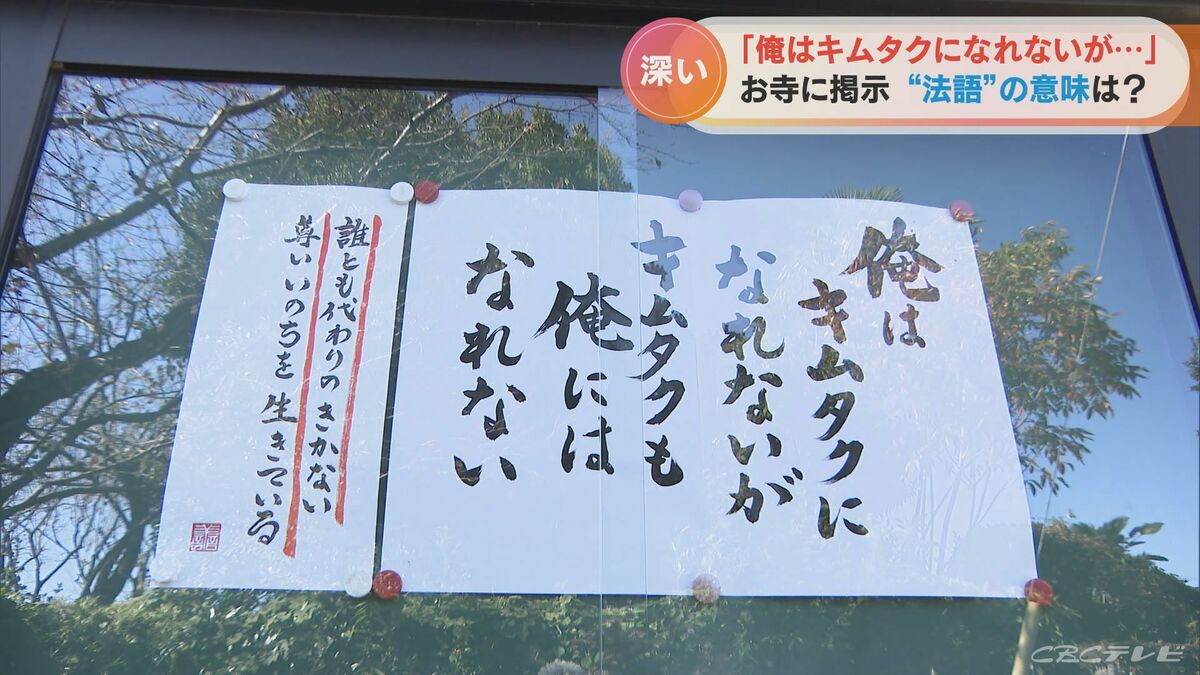 深い
「俺はキムタクになれないが…」
お寺に掲示 “法語”の意味は？
俺は
キムタクに
なれないが
キムタクも
俺には
なれない
誰とも代わりのきかない
尊いいのちを生きている
CBCテレビ